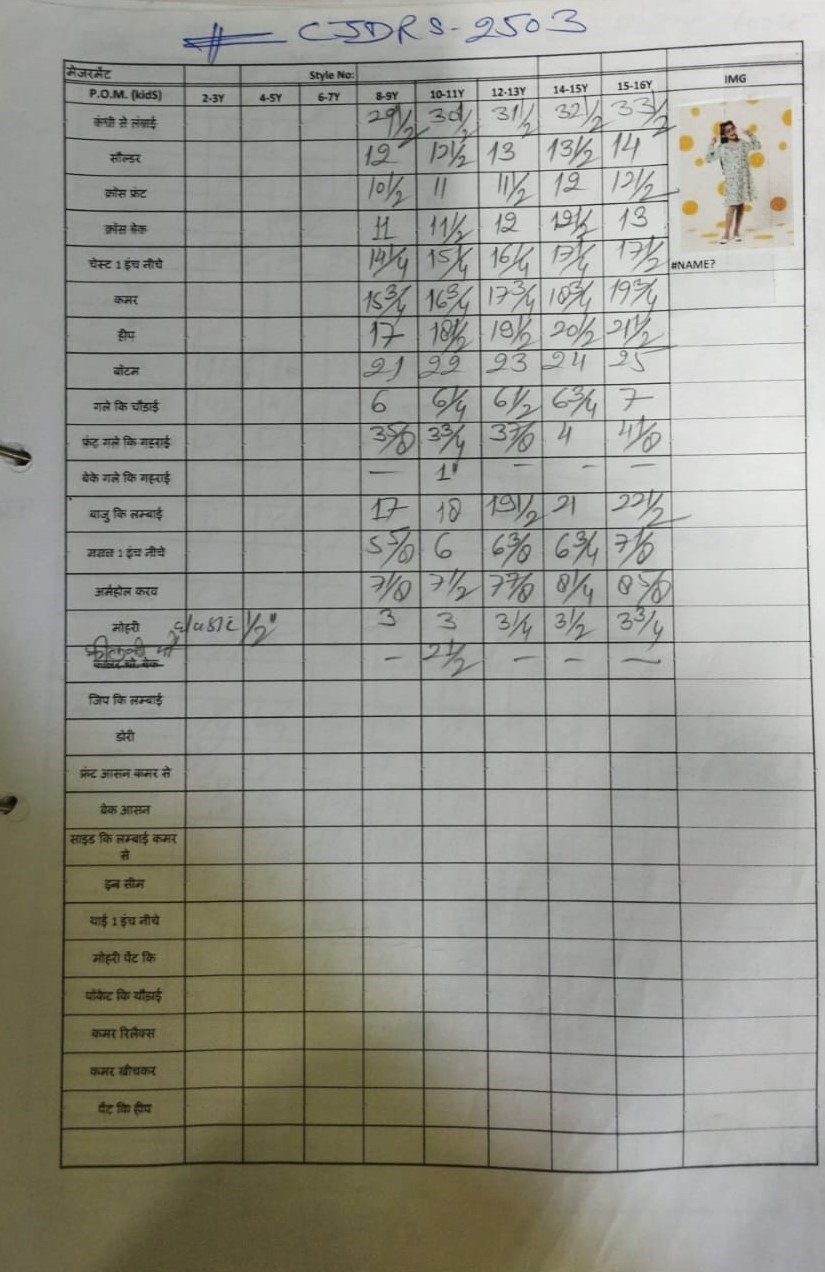 # CJDRS-2503
मेजरमेंट Style No:
P.O.M. (kidS) 2-3Y 4-5Y 6-7Y 8-9Y 10-11Y 12-13Y 14-15Y 15-16Y IMG
कंधी से लंबाई 29 1/2 30 1/2 31 1/2 32 1/2 33 1/2
सौल्डर 12 12 1/2 13 13 1/2 14
क्रोस फ्रंट 10 1/2 11 11 1/2 12 12 1/2
क्रोस बेक 11 11 1/2 12 12 1/2 13
चेस्ट 1 इंच नीचे 14 1/4 15 1/4 16 1/4 17 1/4 17 1/2
#NAME?
कमर 15 3/4 16 3/4 17 3/4 18 3/4 19 3/4
हीप 17 18 1/2 19 1/2 20 1/2 21 1/2
बॉटम 21 22 23 24 25
गले कि चौड़ाई 6 6 1/4 6 1/2 6 3/4 7
फ्रंट गले कि गहराई 3 5/8 3 3/4 3 7/8 4 4 1/8
बेके गले कि गहराई — 1" — — —
बाजु कि लम्बाई 17 18 19 1/2 21 22 1/2
मसल 1 इंच नीचे 5 5/8 6 6 3/8 6 3/4 7 1/8
अर्महोल करव 7 1/8 7 1/2 7 7/8 8 1/4 8 5/8
मोहरी elastic 1/2" 3 3 3 1/4 3 1/2 3 3/4
— 2 1/2 — — —
जिप कि लम्बाई
डोरी
फ्रंट आसन कमर से
बेक आसन
साइड कि लम्बाई कमर
से
इन सीन
थाई 1 इंच नीचे
मोहरी पेंट कि
पॉकेट कि चौड़ाई
कमर रिलैक्स
कमर खीचकर
पेंट कि हीप